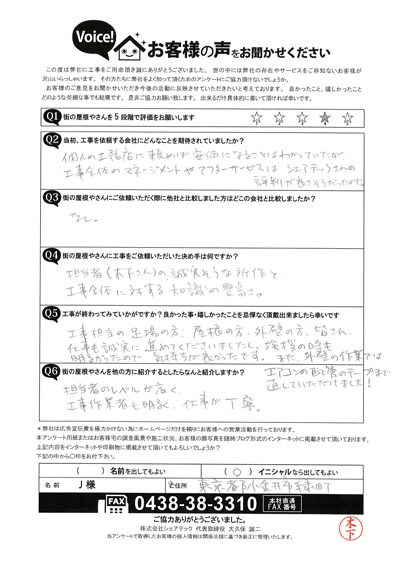 Voice!
お客様の声をお聞かせください
この度は弊社に工事をご用命頂き誠にありがとうございました。世の中には弊社の存在やサービスをご存知ないお客様が
沢山いらっしゃいます。その方たちに弊社をよく知って頂くためのアンケートにご協力頂けないでしょうか。
お客様のご意見をお聞かせいただき今後の活動に反映させていただきたいと考えております。良かったこと、嬉しかったこと
どのような些細な事でも結構です。是非ご協力お願い致します。出来るだけ具体的に書いて頂ければ幸いです。
Q1 街の屋根やさんを5段階で評価をお願いします
☆ ☆ ☆ ☆ ☆
Q2 当初、工事を依頼する会社にどんなことを期待されていましたか?
個人の工務店に頼めば安価になることはわかっていたが、
工事全体のマネージメントやアフターサービスはシェアテックさんの
評判が良さそうだったので。
Q3 街の屋根やさんにご依頼いただく際に他社と比較しました方はどこの会社と比較しましたか?
なし。
Q4 街の屋根やさんに工事をご依頼いただいた決め手は何ですか?
担当者(木下さん)の誠実そうな所作と、
工事全体に対する知識の豊富さ。
Q5 工事が終わってみていかがですか?良かった事・嬉しかったことを忌憚なく頂戴出来ましたら幸いです
工事担当の足場の方、屋根の方、外壁の方、皆さん、
仕事も誠実に進めてくださいましたし、挨拶の時も
明るかったので、気持ちが良かったです。また、外壁の作業では
エアコンの配管のテープまで
直していただけました!
Q6 街の屋根やさんを他の方に紹介するとしたらなんと紹介しますか?
担当者のレベルが高く、
工事作業者も明るく、仕事が丁寧。
＊弊社は広告宣伝費を極力かけない為にホームページだけを頼りにお客様への営業活動を行っております。
本アンケート用紙またはお客様宅の調査風景や施工状況、お客様の顔写真を随時ブログ形式のインターネットに掲載させて頂いております。
上記内容をインターネットや印刷物に掲載させて頂いてもよろしいでしょうか?
下記の中から〇印をお付下さい。
( ) 名前を出してもよい ( 〇 ) イニシャルなら出してもよい
名前 J 様 ご住所 東京都小金井市緑町
FAX 0438-38-3310 本社直通 FAX番号
ご協力ありがとうございました。
株式会社シェアテック 代表取締役 大久保 誠二
当アンケートで取得したお客様の個人情報は関係法規に基づき厳正に管理いたします。
木下